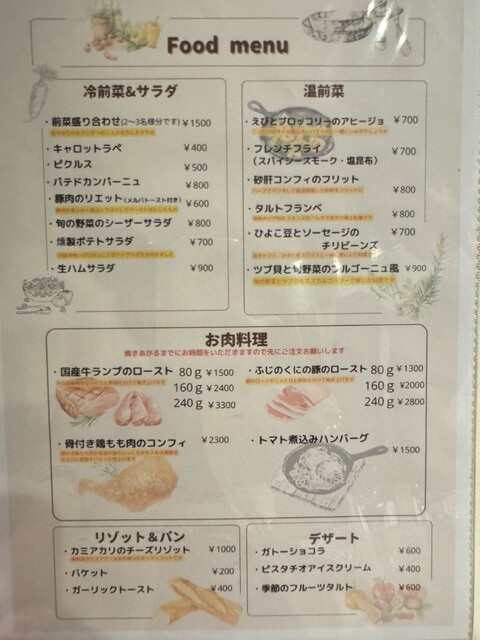 Food menu
冷前菜&サラダ
・前菜盛り合わせ(2〜3名様分です) ¥1500
・キャロットラペ ¥400
・ピクルス ¥500
・パテドカンパーニュ ¥800
・豚肉のリエット(メルバトースト付き) ¥600
・旬の野菜のシーザーサラダ ¥800
・燻製ポテトサラダ ¥700
・生ハムサラダ ¥900
温前菜
・えびとブロッコリーのアヒージョ ¥700
・フレンチフライ ¥700
(スパイシースモーク・塩昆布)
・砂肝コンフィのフリット ¥800
・タルトフランベ ¥800
・ひよこ豆とソーセージの ¥700
チリビーンズ
・ツブ貝と旬野菜のブルゴーニュ風 ¥900
お肉料理
焼きあがるまでにお時間をいただきますので先にご注文お願いします
・国産牛ランプのロースト 80g ¥1500
160g ¥2400
240g ¥3300
・骨付き鶏もも肉のコンフィ ¥2300
・ふじのくにの豚のロースト 80g ¥1300
160g ¥2000
240g ¥2800
・トマト煮込みハンバーグ ¥1500
リゾット&パン
・カミアカリのチーズリゾット ¥1000
・バケット ¥200
・ガーリックトースト ¥400
デザート
・ガトーショコラ ¥600
・ピスタチオアイスクリーム ¥400
・季節のフルーツタルト ¥600